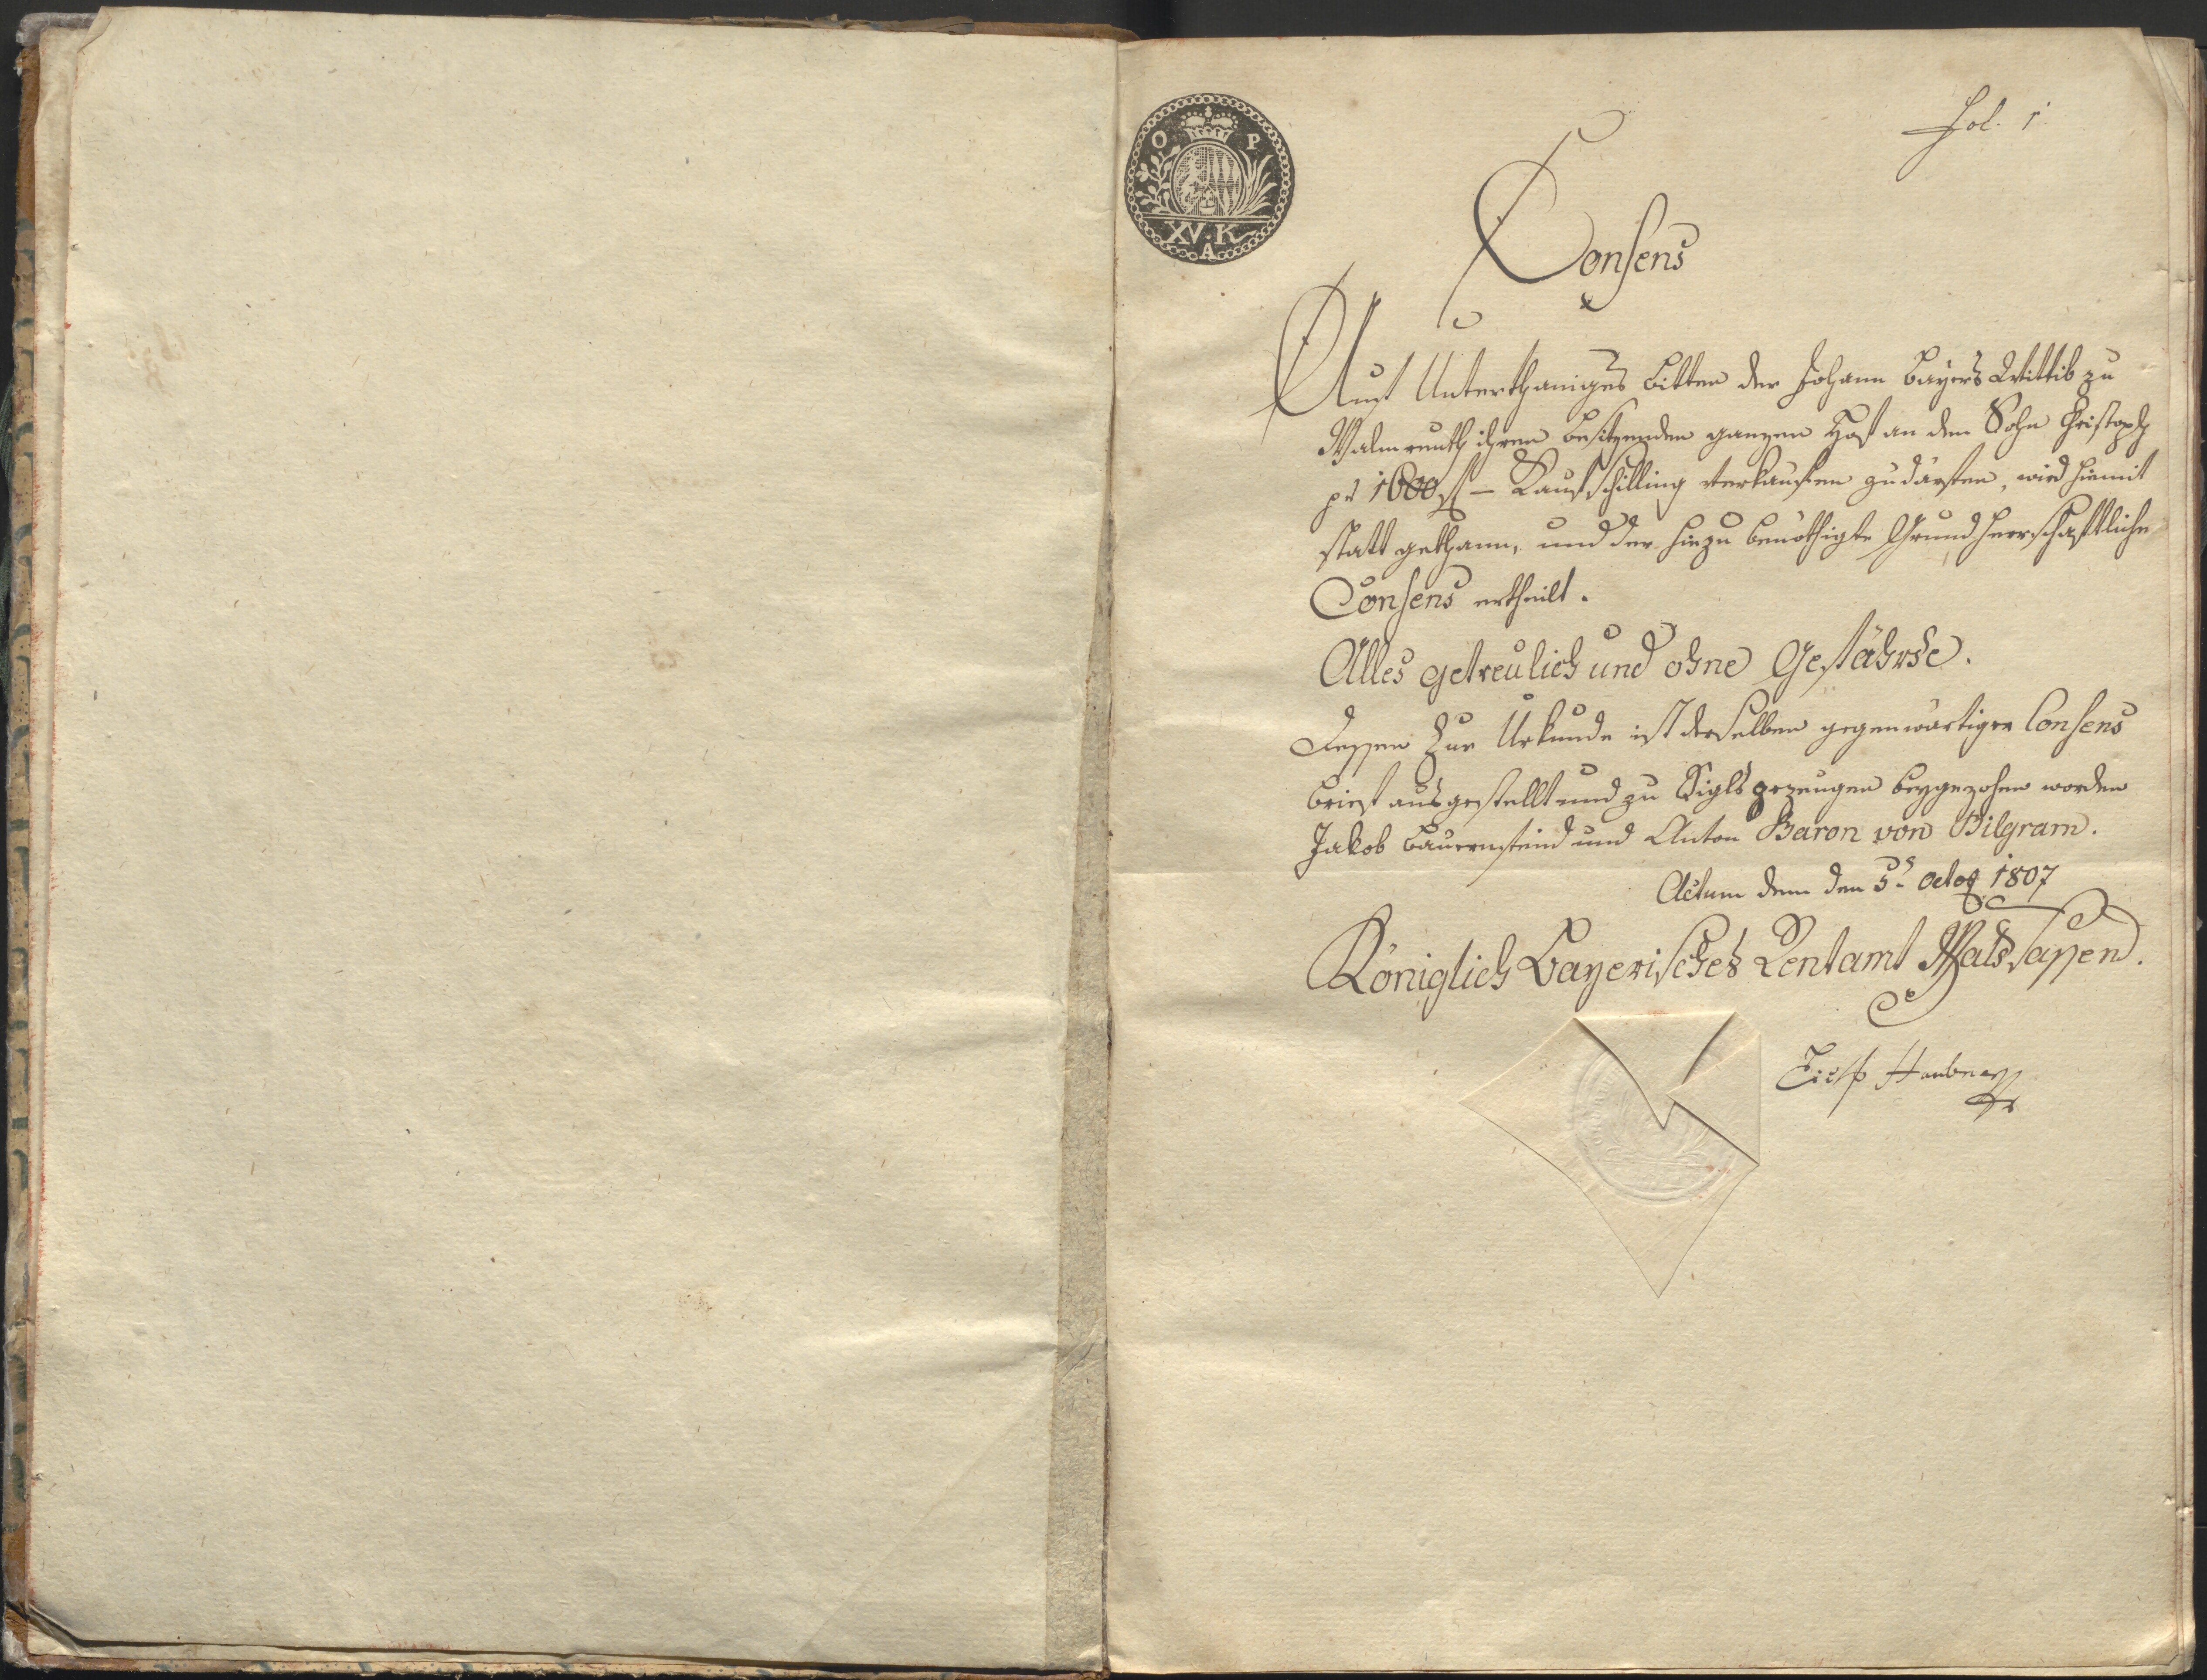 Fol. 1.
O P
XV. K
A
Consens
Auf Unterthäniges bitten der Johann Bayers Wittib zu
Walmreuth ihren besitzenden ganzen Hof an den Sohn Christoph
pr 1600 fl – Kaufschilling verkaufen zudärfen, wird hiemit
statt gethann, und der hiezu benöthigte Grundherrschaftliche
Consens ertheilt.
Alles getreulich und ohne Gefährde.
Dessen Zur Urkunde ist derselben gegenwärtiger Consens
brief ausgestellt und zu Siglsgezeugen beygezohen worden
Jakob Bauernfeind und Anton Baron von Pilgram.
Actum den den 5t. octob 1807
Königlich Bayerisches Rentamt Waldsassen.